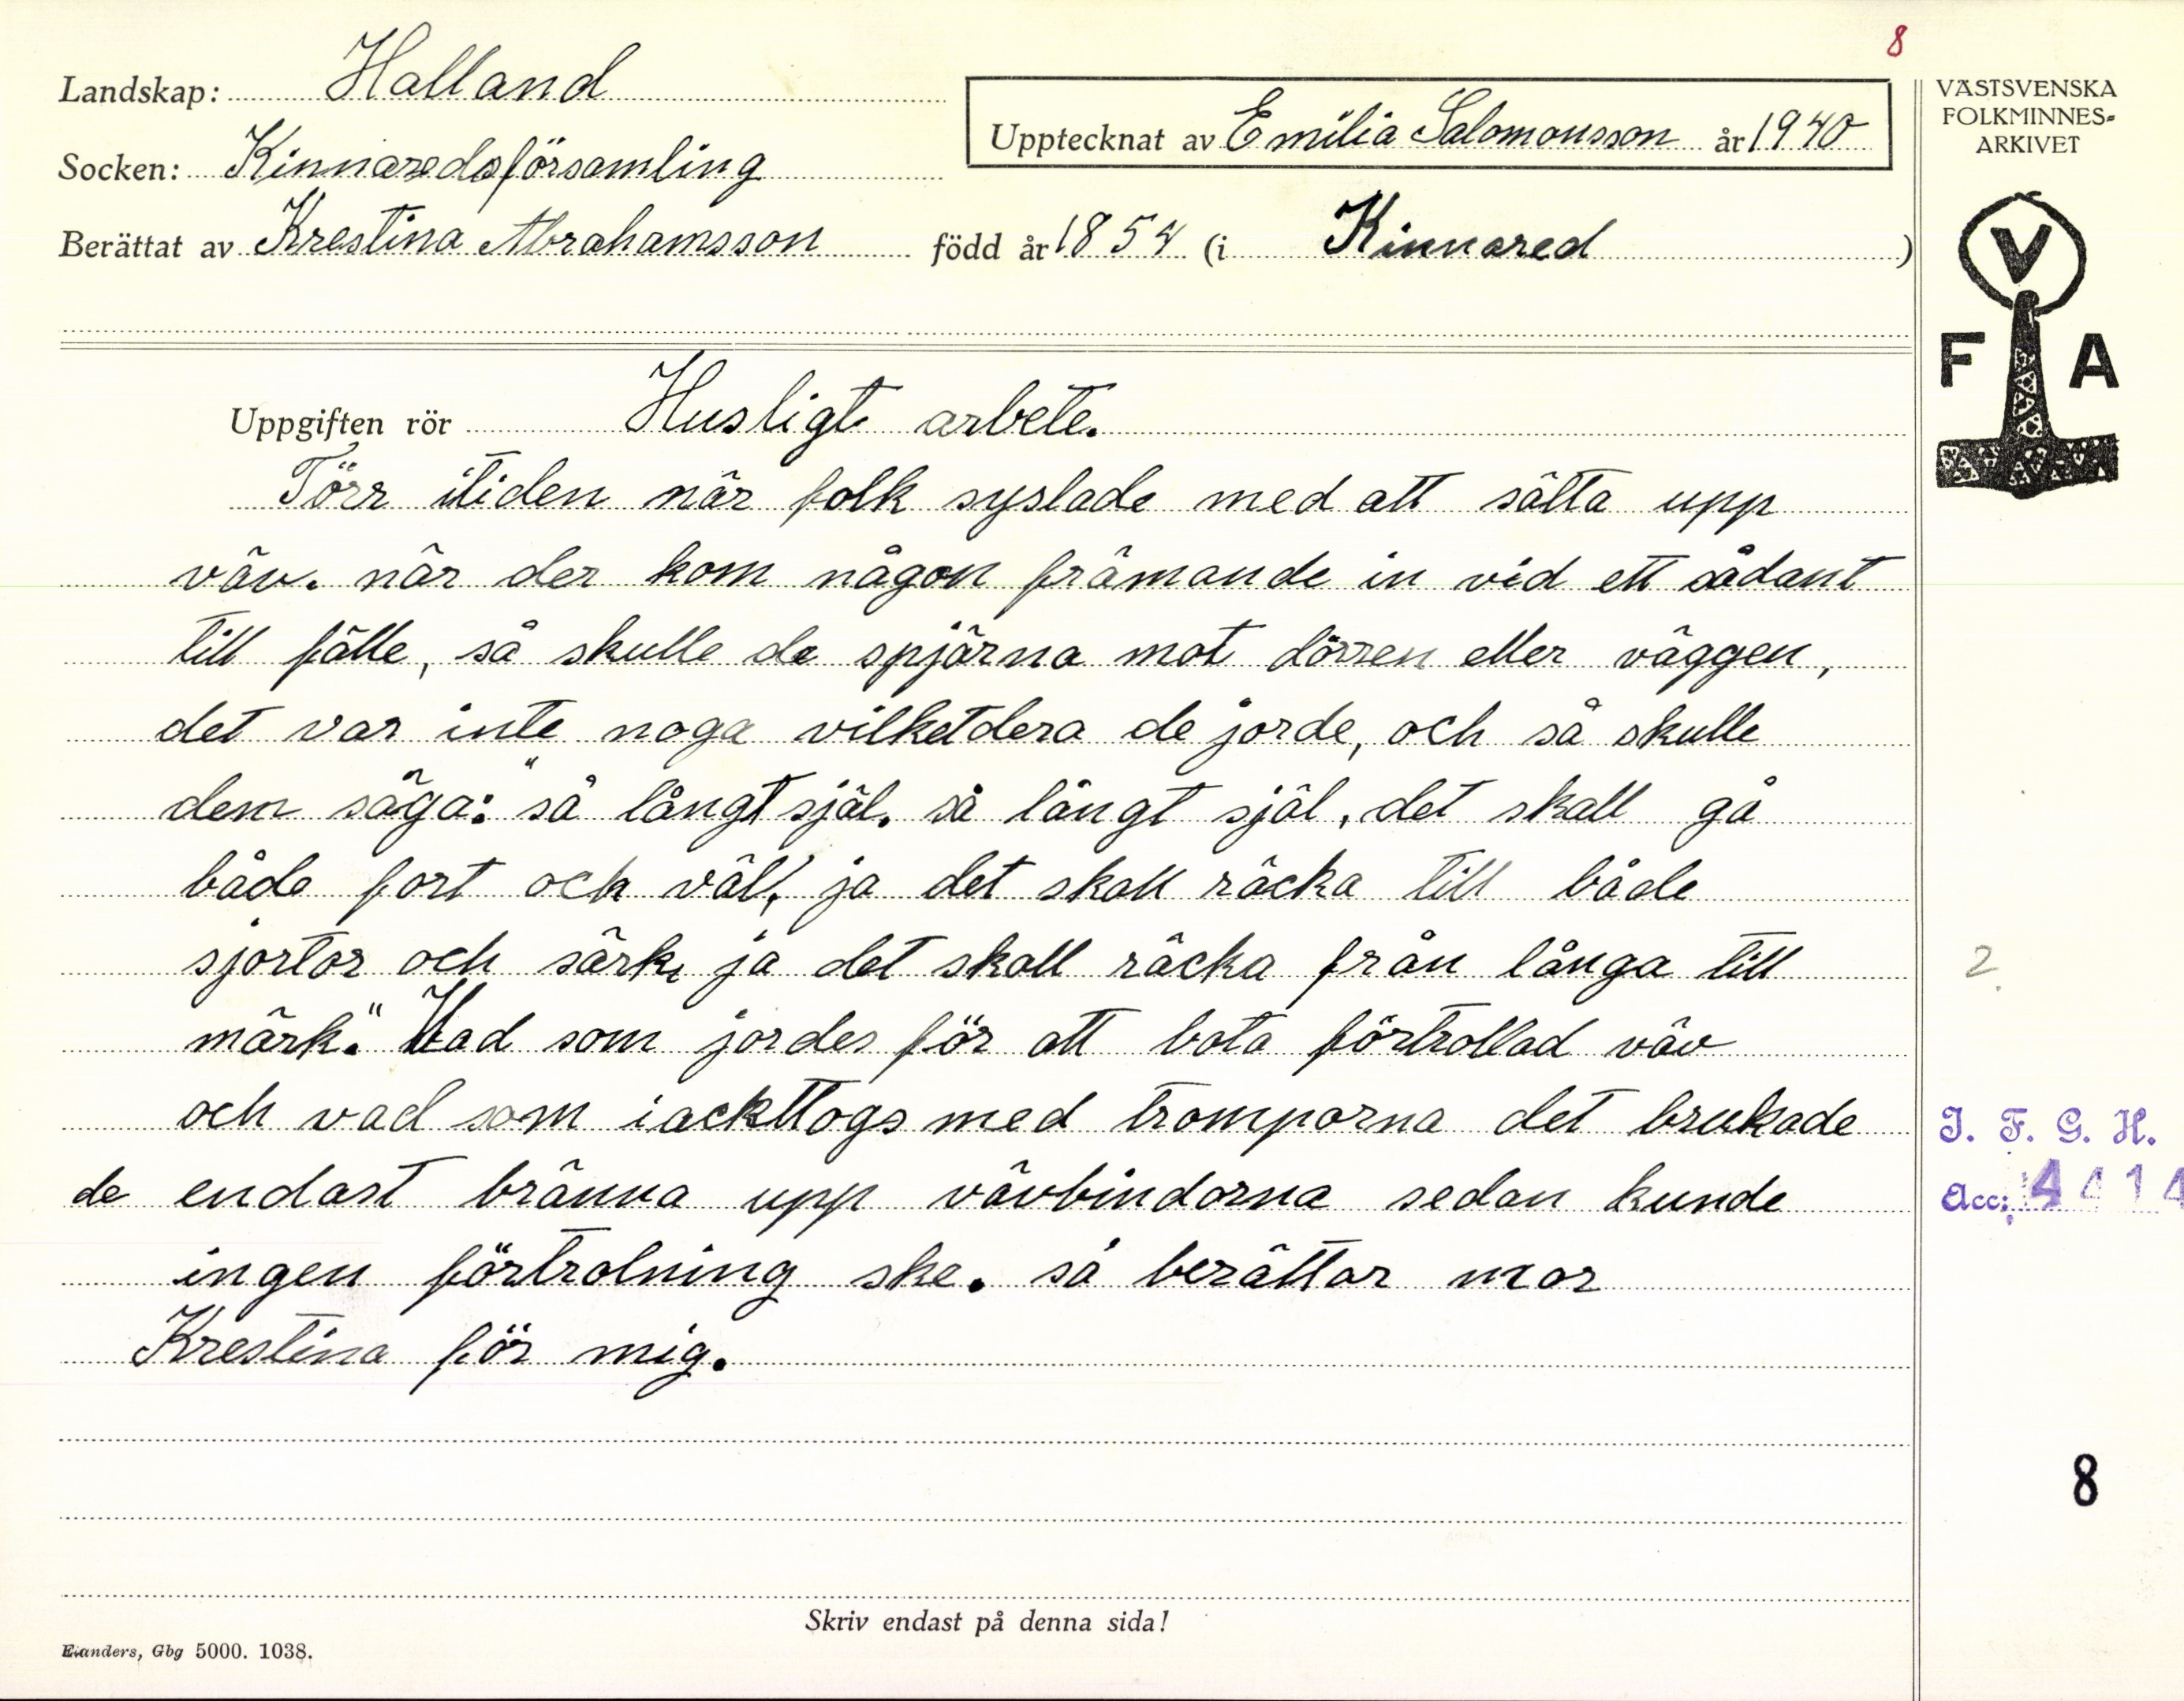 8
Landskap: Halland
Upptecknat av Emilia Salomonsson år 1940
Socken: Kinnaredsförsamling
Berättat av Krestina Abrahamsson född år 1854 (i Kinnared)
VÄSTSVENSKA
FOLKMINNES-
ARKIVET
V
F A
Uppgiften rör Husligt arbete.
Förr itiden när folk syslade med att sätta upp
väv. när der kom någon främande in vid ett sådant
till fälle, så skulle de spjärna mot dörren eller väggen,
det var inte noga vilketdera de jorde, och så skulle
dem säga: "så långt själ. så långt själ, det skall gå
både fort och väl, ja det skall räcka till både
sjortor och särk, ja det skall räcka från långa till
märk." Vad som jordes för att bota förtrollad väv
och vad som iackttogs med tromporna det brukade
de endast bränna upp vävbindorna sedan kunde
ingen förtrolning ske. så berättar mor
Krestina för mig.
2.
I. F. G. H.
Acc: 4414
8
Skriv endast på denna sida!
Elanders, Gbg 5000. 1038.